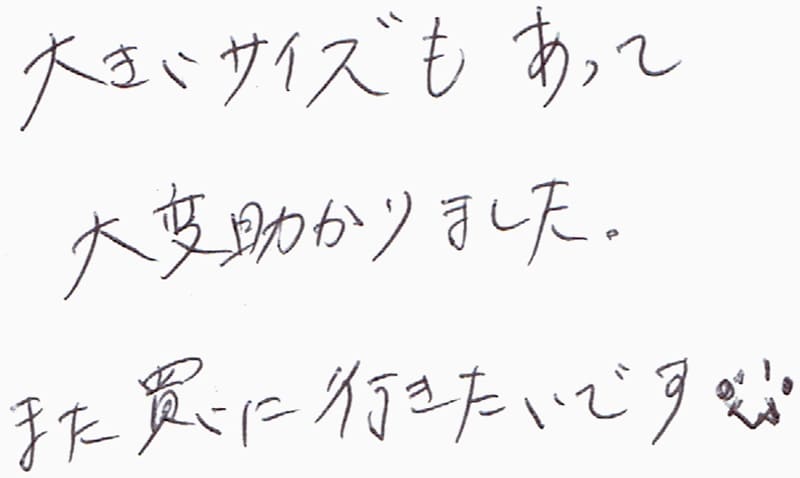 大きいサイズもあって
大変助かりました。
また買いに行きたいです